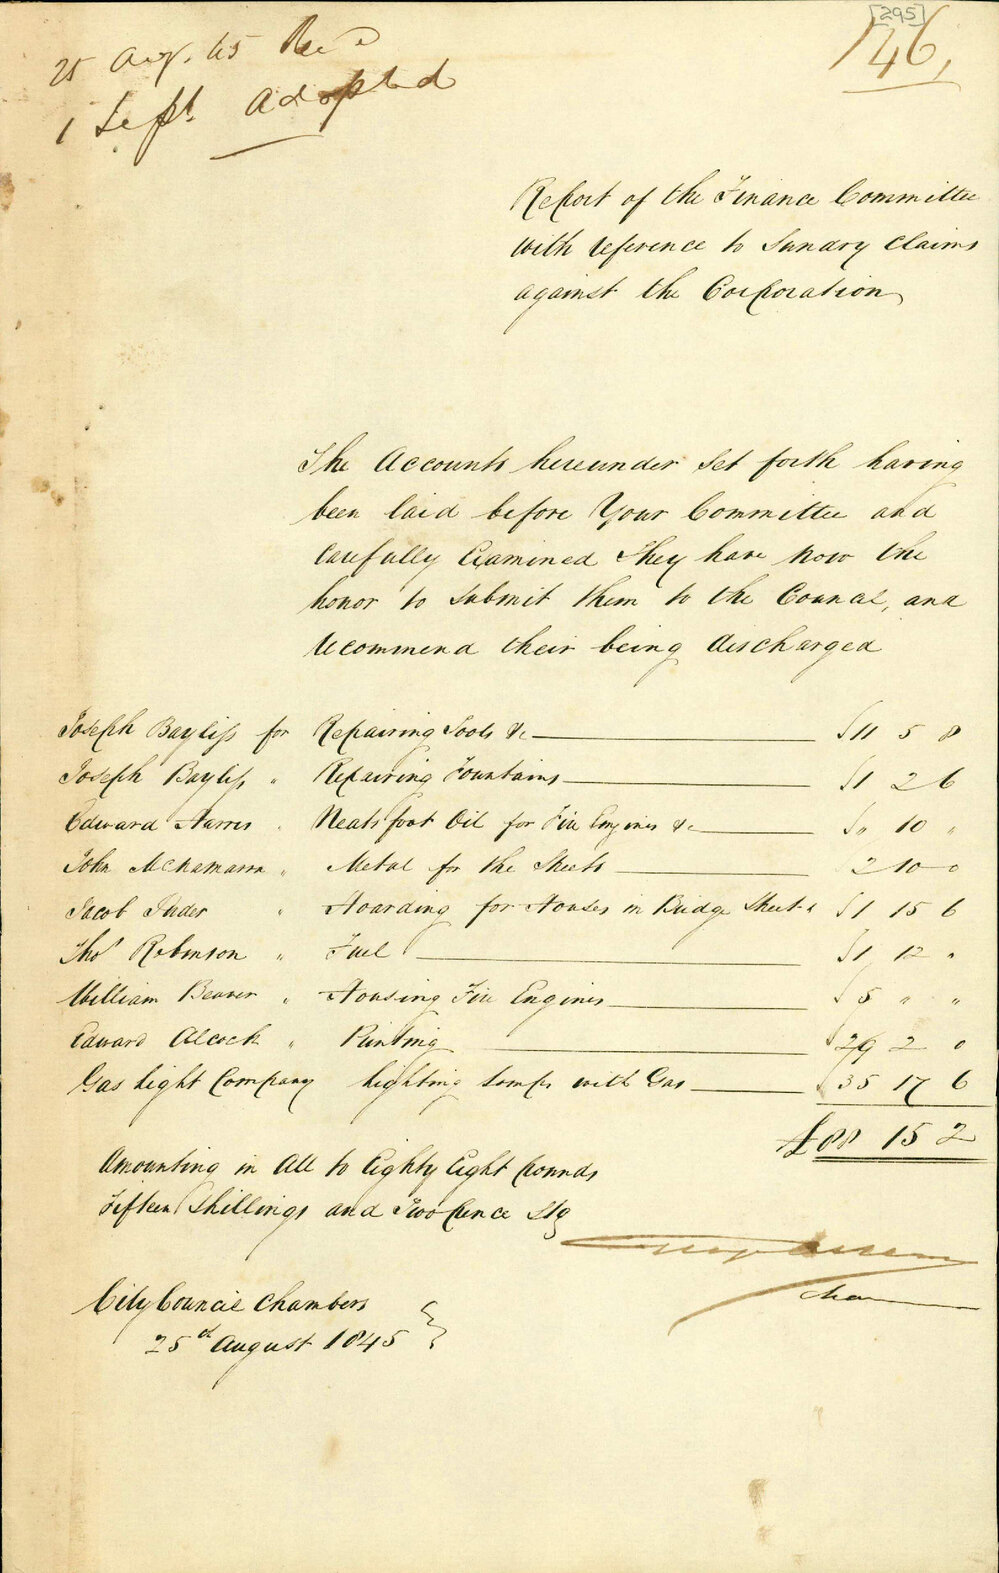 [295]
146,
25 Aug. 45 Rec d
1 Sept. Adopted
Report of the Finance Committee
with reference to Sundry Claims
against the Corporation
The Accounts hereunder set forth having
been laid before Your Committee and
Carefully Examined They have now the
honor to Submit them to the Council, and
recommend their being discharged
Joseph Bayliss for Repairing Tools &c √11 5 8
Joseph Bayliss " Repairing Fountains √1 2 6
Edward Harris " Neatsfoot Oil for Fire Engines &c √" 10 "
John McNamara " Metal for the Streets 2 10 0
Jacob " Hoarding for Houses in Bridge Street √1 15 6
Thos Robinson " Fuel √1 12 "
William Beaver " Housing Fire Engines √5 " "
Edward Alcock " Printing √29 2 0
Gas Light Company Lighting Lamps with Gas √35 17 6
£88 15 2
Amounting in All to Eighty Eight pounds
Fifteen Shillings and Two pence Stg
Chan
City Council Chambers
25th August 1845